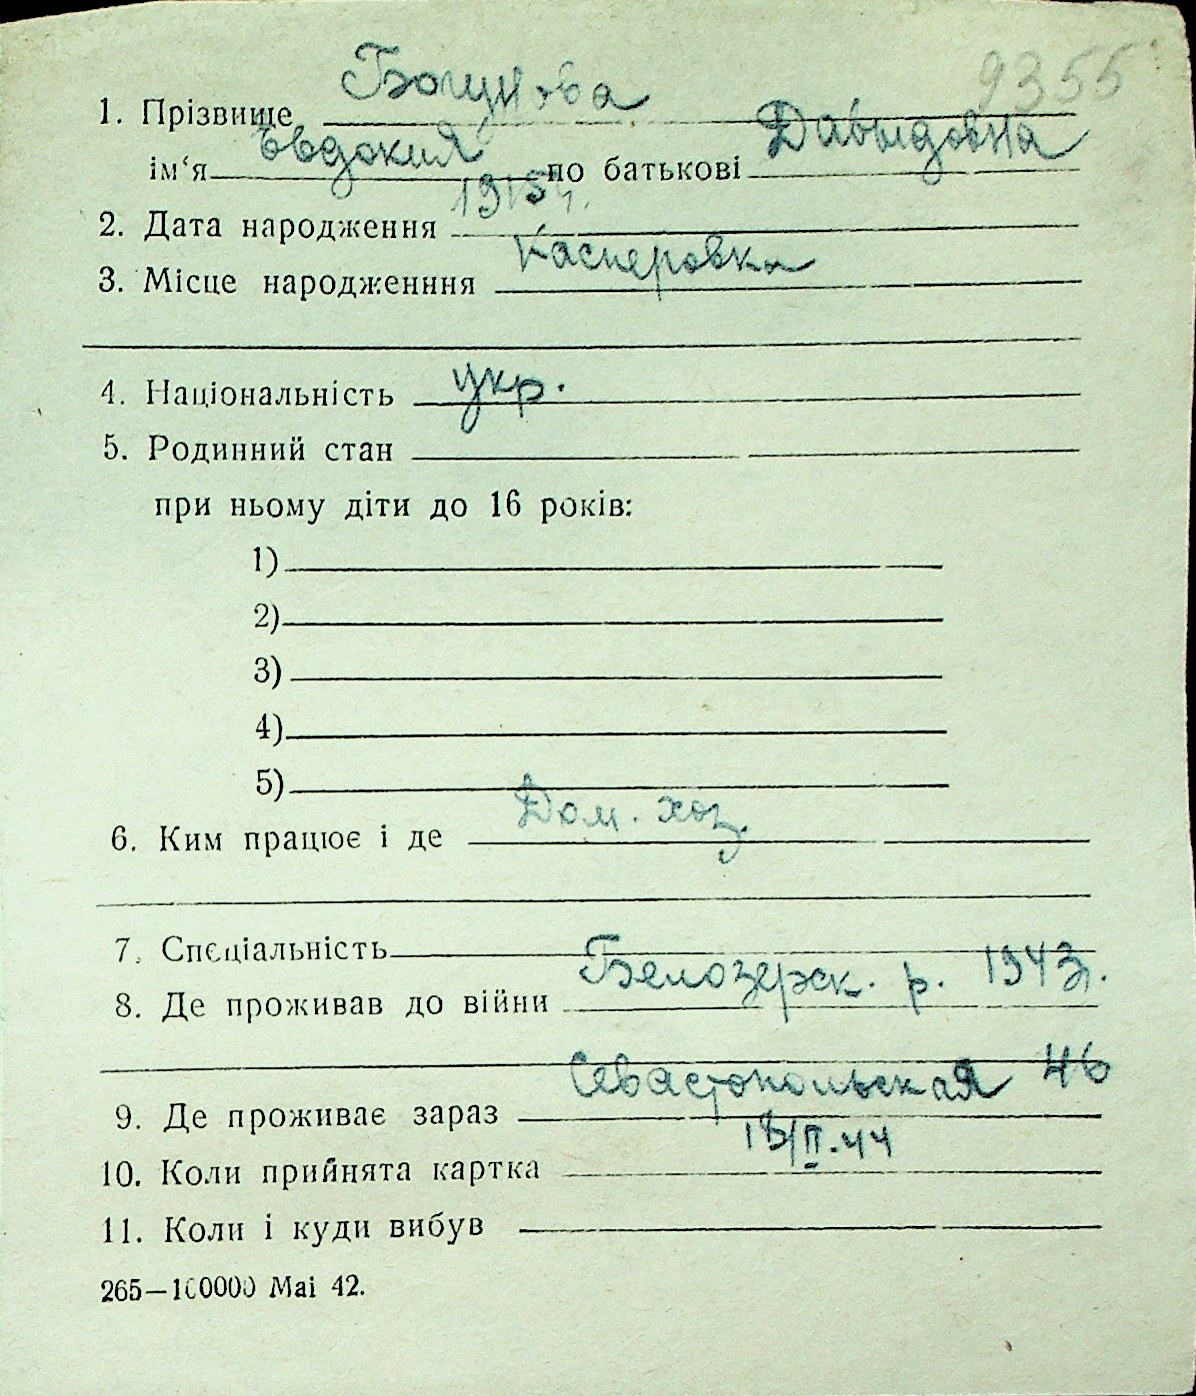 9355
1. Прізвище Богунова
ім‘я Евдокия по батькові Давыдовна
2. Дата народження 1915 г.
3. Місце народженння Касперовка
4. Національність укр.
5. Родинний стан
при ньому діти до 16 років:
1)
2)
3)
4)
5)
6. Ким працює і де Дом. хоз.
7. Спєціальність
8. Де проживав до війни Белозерск. р. 1943 г.
9. Де проживає зараз Севастопольская 46
10. Коли прийнята картка 18/II.44
11. Коли і куди вибув
265—100000 Mai 42.